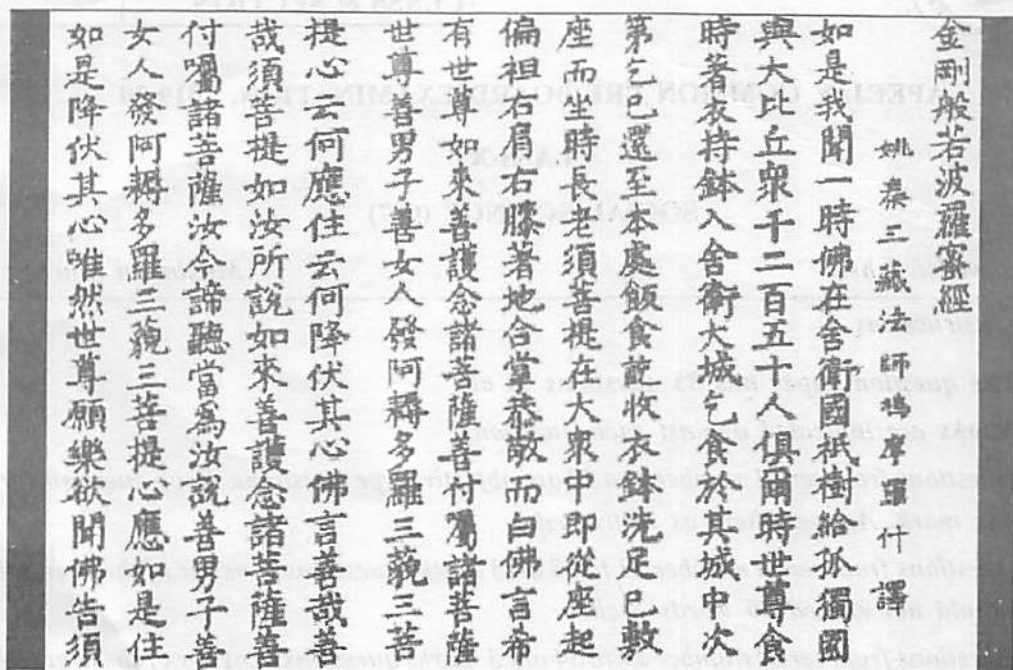 金剛般若波羅蜜經
姚秦三藏法師鳩摩羅什譯
如是我聞一時佛在舍衛國祇樹給孤獨園
與大比丘眾千二百五十人俱爾時世尊食
時著衣持鉢入舍衛大城乞食於其城中次
第乞已還至本處飯食訖收衣鉢洗足已敷
座而坐時長老須菩提在大眾中即從座起
偏袒右肩右膝著地合掌恭敬而白佛言希
有世尊如來善護念諸菩薩善付囑諸菩薩
世尊善男子善女人發阿耨多羅三藐三菩
提心云何應住云何降伏其心佛言善哉善
哉須菩提如汝所說如來善護念諸菩薩善
付囑諸菩薩汝今諦聽當爲汝說善男子善
女人發阿耨多羅三藐三菩提心應如是住
如是降伏其心唯然世尊願樂欲聞佛告須